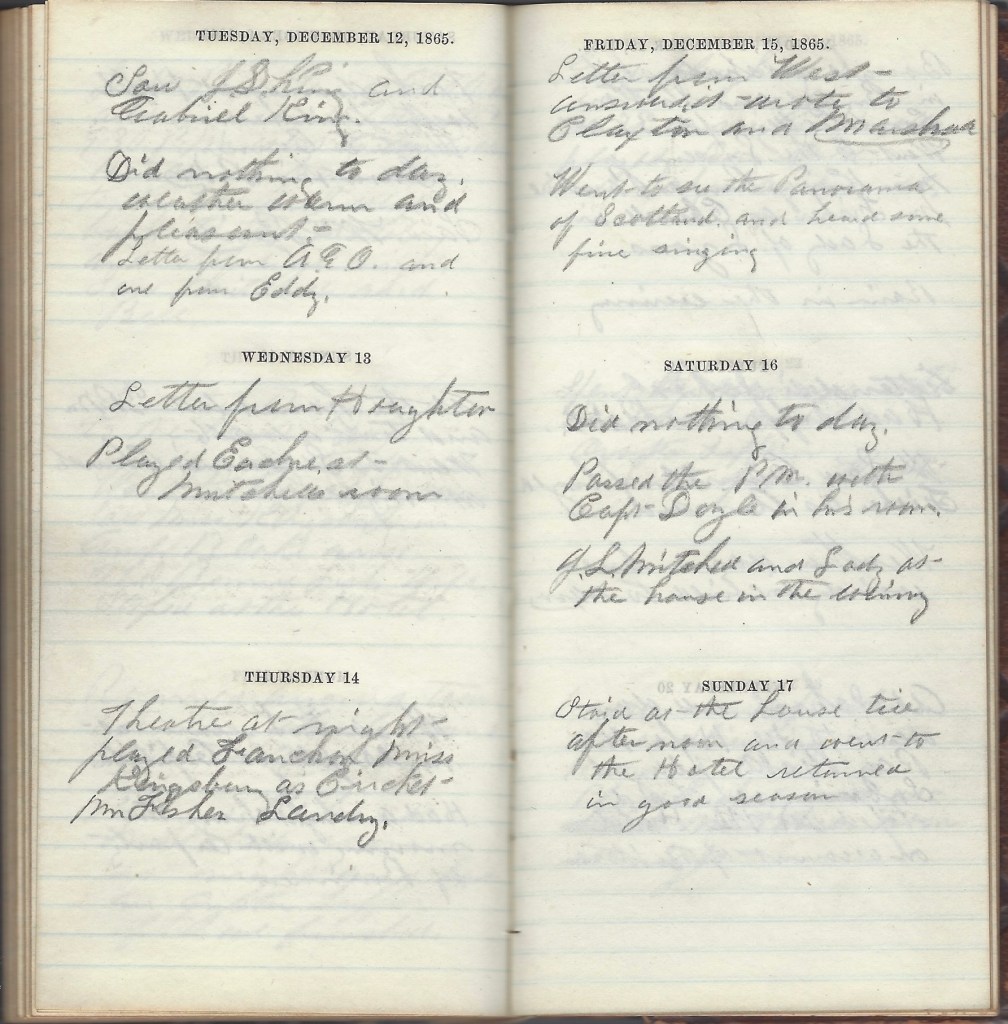 TUESDAY, DECEMBER 12, 1865.
Saw J S King and
Gabriel King.
Did nothing to day.
weather warm and
pleasant-
Letter from A E O. and
one from Eddy.
WEDNESDAY 13
Letter from Houghton
Played Euchre at-
Mitchells room
THURSDAY 14
Theatre at night-
played Fanchon Miss
Kingsbury as Cricket-
Mr Fisher Landry.
FRIDAY, DECEMBER 15, 1865.
Letter from West-
answered it- wrote to
Claxton and Marshall
Went to see the Panorama
of Scotland and heard some
fine singing
SATURDAY 16
Did nothing to day.
Passed the P.M. with
Capt- Doyle in his room.
J. L. Mitchell and Lady at-
the house in the evening
SUNDAY 17
Staid at the house till
after noon and went to
the Hotel returned
in good season